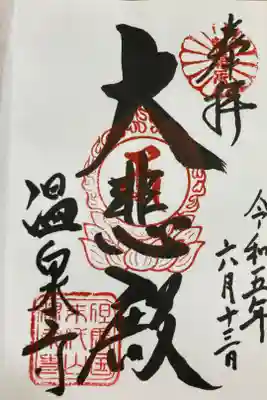 奉拝
令和五年
六月十三日
大悲殿
温泉寺